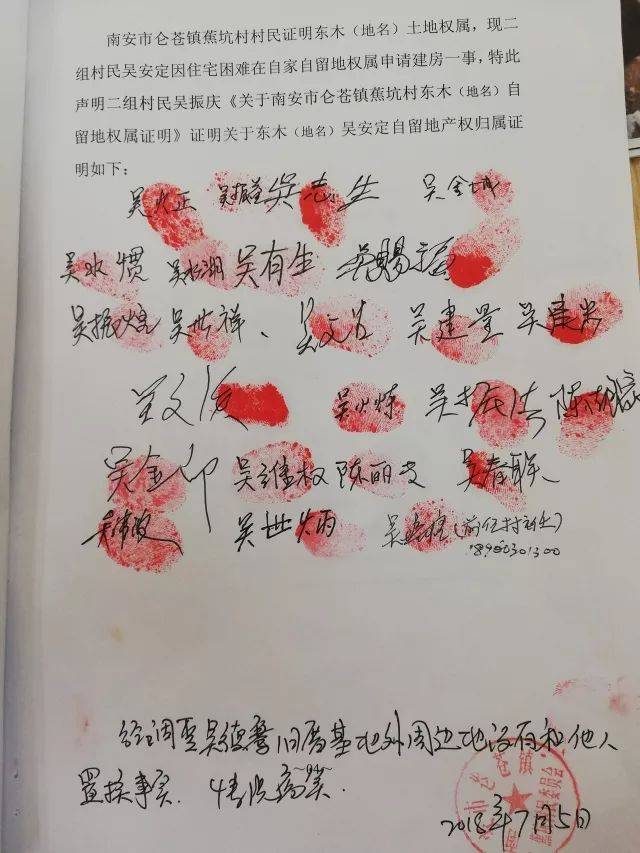 南安市仑苍镇蕉坑村村民证明东木（地名）土地权属，现二
组村民吴安定因住宅困难在自家自留地权属申请建房一事，特此
声明二组村民吴振庆《关于南安市仑苍镇蕉坑村东木（地名）自
留地权属证明》证明关于东木（地名）吴安定自留地产权归属证
明如下：
吴火正 吴志生 吴金城
吴水惯 吴有生 吴赐福
吴振煌 吴世祥、吴文甘 吴建量
吴文俊 吴火炼 吴振清
吴金印 吴维权 陈丽 吴春联
吴世炳 (前任村主任)
18900301300
经调查吴德 旧厝基地外周边地没有和他人
置换事实. 情况属实.
仑苍镇
委员会
2018年7月5日